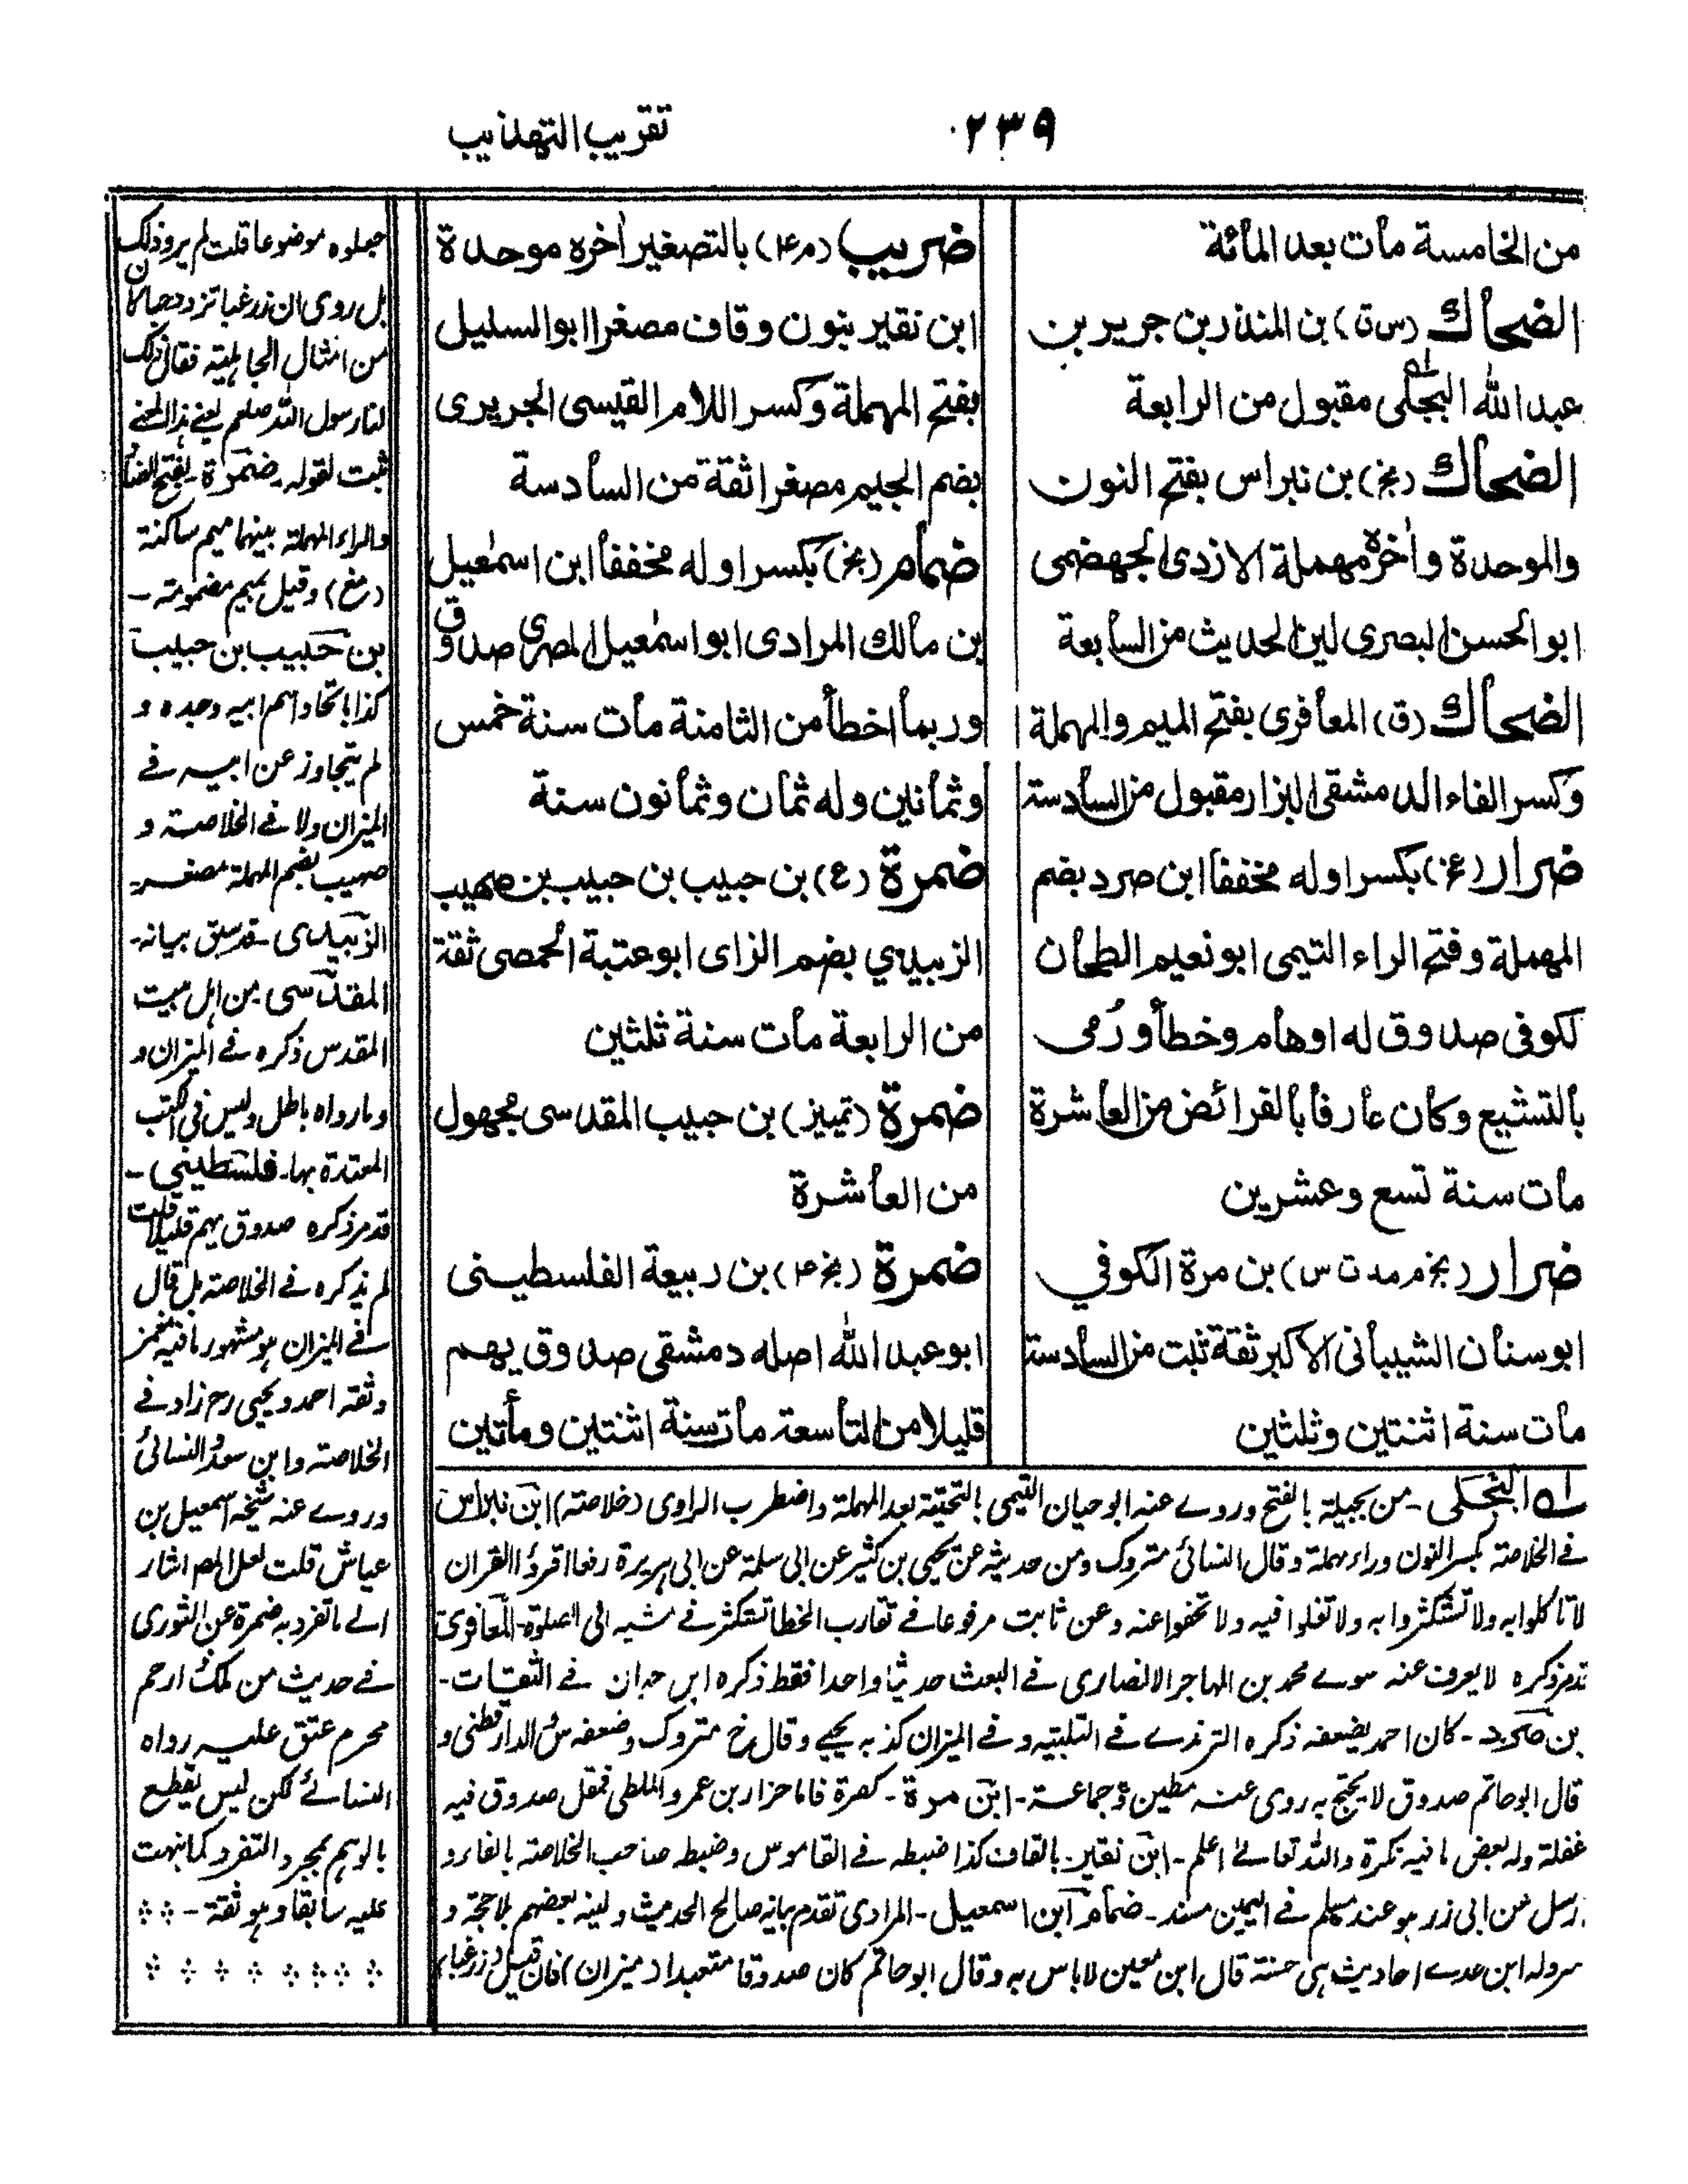 ٢٣٩
تقريب التهذيب
من الخامسة مات بعد المائة
الضحاك (س ق) بن المنذر بن جرير بن
عبد الله البجلى مقبول من الرابعة
الضحاك (بخ) بن نبراس بفتح النون
والموحدة واٰخره مهملة الازدى الجهضمى
ابو الحسن البصرى لين الحديث من السابعة
الضحاك (ق) المعافرى بفتح الميم والمهملة
وكسر الفاء الدمشقى البزار مقبول من السادسة
ضرار (عخ) بكسر اوله مخففا ابن صرد بضم
المهملة وفتح الراء التيمى ابو نعيم الطحان
لكوفى صدوق له اوهام وخطأ ورُمى
بالتشيع وكان عارفا بالفرائض من العاشرة
مات سنة تسع وعشرين
ضرار (بخ م مد ت س) بن مرة الكوفي
ابو سنان الشيبانى الاكبر ثقة ثبت من السادسة
مات سنة اثنتين وثلثين
ضريب (م ۴) بالتصغير اٰخره موحدة
ابن نقير بنون وقاف مصغرا ابو السليل
بفتح المهملة وكسر اللام القيسى الجريرى
بضم الجيم مصغرا ثقة من السادسة
ضمام (بخ) بكسر اوله مخففا ابن اسمٰعيل
بن مالك المرادى ابو اسمٰعيل المصرى صدوق
وربما اخطأ من الثامنة مات سنة خمس
وثمانين وله ثمان وثمانون سنة
ضمرة (۴) بن حبيب بن حبيب بن صهيب
الزبيدي بضم الزاى ابو عتبة الحمصى ثقة
من الرابعة مات سنة ثلثين
ضمرة (تمييز) بن حبيب المقدسى مجهول
من العاشرة
ضمرة (بخ ۴) بن ربيعة الفلسطينى
ابو عبد الله اصله دمشقى صدوق يهم
قليلا من التاسعة مات سنة اثنتين ومأتين
لـه البجلى - من بجيلة بالفتح وروے عنه ابو حيان التيمى بالتحتية بعد المهملة واضطرب الراوى (خلاصة) ابن نبراس
فے الخلاصة بكسر النون وراء مهملة وقال النسائى متروك ومن حديثه عن يحيى بن كثير عن ابى سلمة عن ابى هريرة رفعا اقرؤا القران
لا تاكلوا به ولا تستكثروا به ولا تغلوا فيه ولا تجفوا عنه وعن ثابت مرفوعا فے تقارب الخطا تستكثر فے مشيه الى الصلوة - المعافرى
قد مر ذكره لا يعرف عنه سوے محمد بن المهاجر الانصارى فے البعث حديثا واحدا فقط ذكره ابن حبان فے الثقات -
بن صُرَد - كان احمد يضعفه ذكره الترمذے فے التلبية وفے الميزان كذبه يحيے وقال خ متروك وضعفه س الدارقطنى و
قال ابو حاتم صدوق لا يحتج به روى عنه مطين وجماعة - ابن مرة - كعمرة فاما ضرار بن عمرو الملطى فمقل صدوق فيه
غفلة وله بعض ما فيه نكرة والله تعالےٰ اعلم - ابن نقير - بالقاف كذا ضبطه فے القاموس وضبطه صاحب الخلاصة بالفاء و
ارسل عن ابى زر هو عند مسلم فے اليمين مسند - ضمام ابن اسمعيل - المرادى تقدم بيانه صالح الحديث ولينه بعضهم بلا حجة و
سرد له ابن عدے احاديث هى حسنة قال ابن معين لا باس به وقال ابو حاتم كان صدوقا متعبدا (ميزان) فان قيل (زر غبا)
جعلوه موضوعا قلت لم يرو ذلك
بل روى ان زر غبا تزدد حبا كان
من امثال الجاهلية فقال ذلك
لنا رسول الله صلعم يعنے هذا المعنے
ثبت لقوله - ضمرة - بفتح الضاد
والراء المهملة بينهما ميم ساكنة
(مغ) وقيل بميم مضمومة -
بن حبيب بن حبيب
كذا باتحاد اسم ابيه وجده و
لم يتجاوز عن ابيه فے
الميزان ولا فے الخلاصة و
صهيب بضم المهملة مصغر -
الزبيدى - قد سبق بيانه -
المقدسى من اهل بيت
المقدس ذكره فے الميزان و
وما رواه باطل وليس فى الكتب
المعتمدة بها - فلسطيني -
قد مر ذكره صدوق يهم قليلا قلت
لم يذكره فے الخلاصة بل قال
فے الميزان هو مشهور ما فيه مغمز
وثقه احمد ويحيى رح زاد فے
الخلاصة وابن سعد والنسائى
وروے عنه شيخه اسمعيل بن
عياش قلت لعل المص اشار
الے ما تفرد به ضمرة عن الثورى
فے حديث من ملك ذا رحم
محرم عتق عليه رواه
النسائے لكن ليس يقطع
بالوهم بمجرد التفرد كما نبهت
عليه سابقا وهو ثقة -